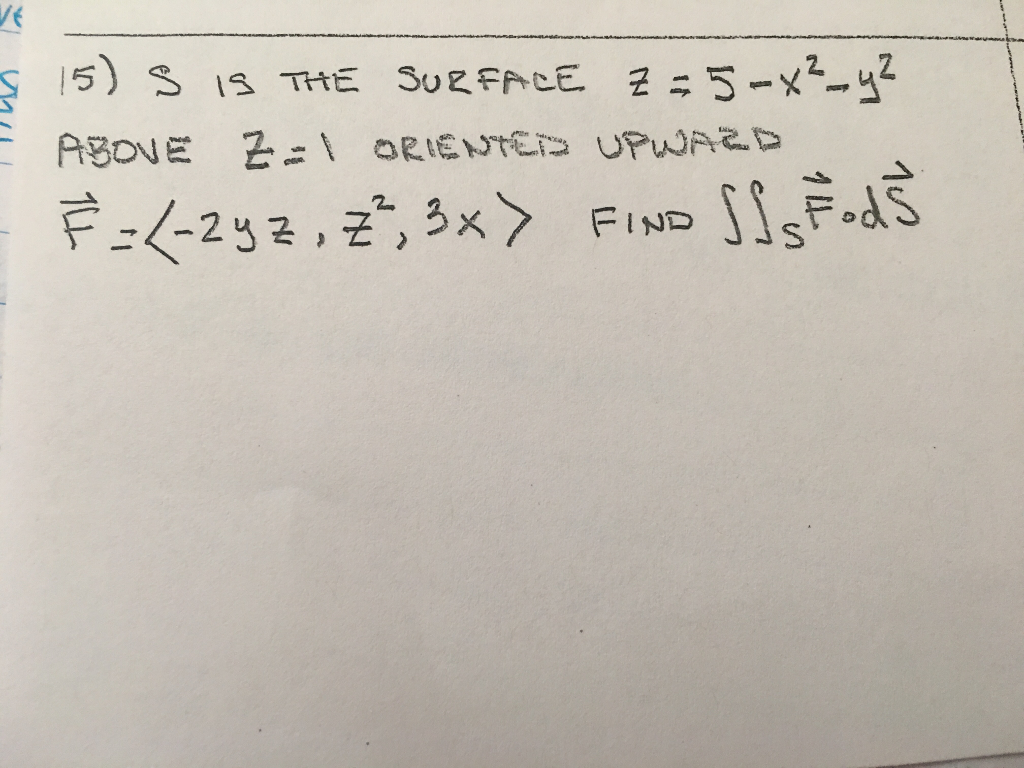 15) S IS THE SURFACE z = 5 - x² - y²
ABOVE Z = 1 ORIENTED UPWARD
F⃗ = ⟨-2yz, z², 3x⟩ FIND ∫∫ₛ F⃗ ∘ dS⃗